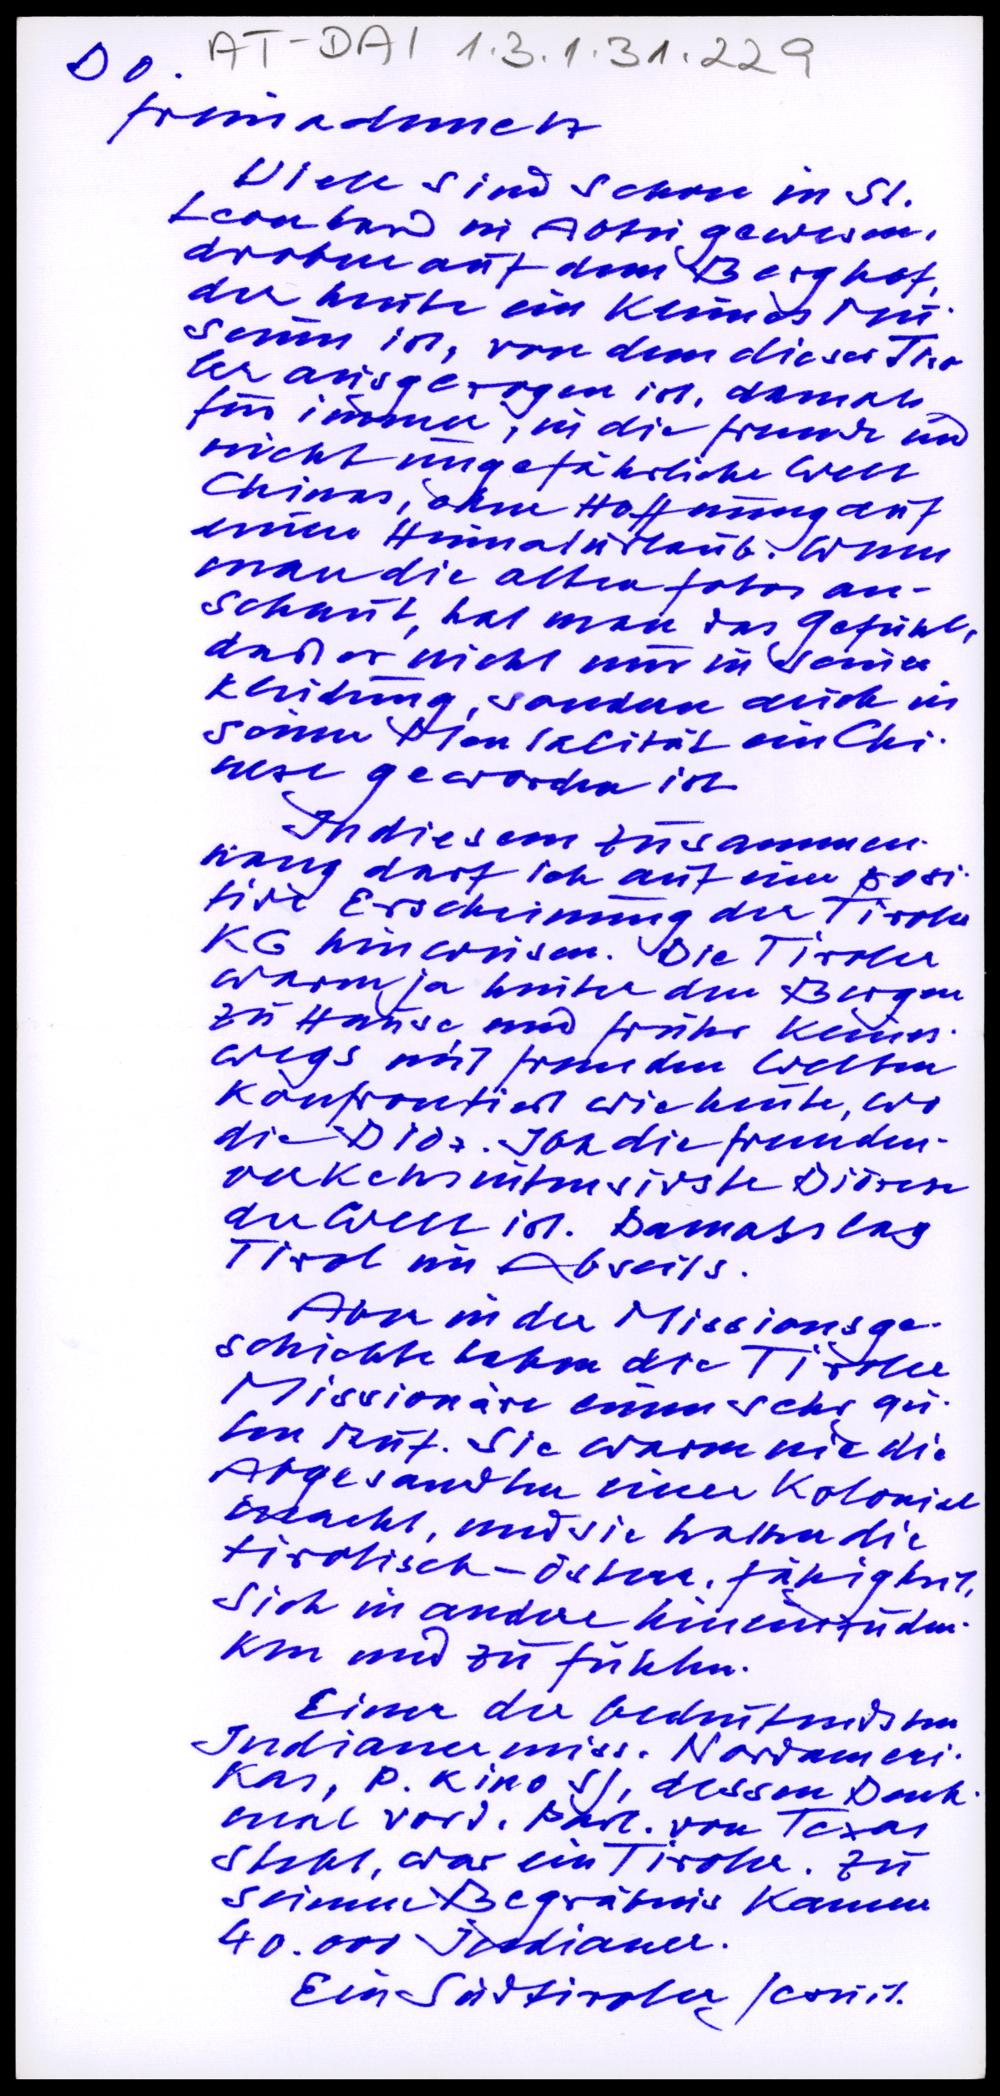 AT-DAI 1.3.1.31.229
Do.
Freinademetz
Viele sind schon in St.
Leonhard in Abtei gewesen,
droben auf dem Berghof,
der heute ein kleines Mu-
seum ist, von dem dieser Tiro
ler ausgezogen ist, damals
für immer, in die fremde und
nicht ungefährliche Welt
Chinas, ohne Hoffnung auf
einen Heimaturlaub. Wenn
man die alten Fotos an-
schaut, hat man das Gefühl,
daß er nicht nur in seiner
Kleidung, sondern auch in
seiner Mentalität ein Chi-
nese geworden ist
In diesem Zusammen-
hang darf ich auf eine posi-
tive Erscheinung der Tiroler
KG hinweisen. Die Tiroler
waren ja hinter den Bergen
zu Hause und früher keines-
wegs mit fremden Welten
konfrontiert wie heute, wo
die Diöz. Ibk die fremden-
verkehrsintensivste Diözese
der Welt ist. Damals lag
Tirol im Abseits.
Aber in der Missionsge-
schichte haben die Tiroler
Missionäre einen sehr gu-
ten Ruf. Sie waren nie die
Abgesandten einer Kolonial
macht, und sie hatten die
tirolisch-österr. Fähigkeit,
sich in andere hineinzuden-
ken und zu fühlen.
Einer der bedeutendsten
Indianermiss. Nordameri-
kas, P. Kino SJ, dessen Denk-
mal vor d. Parl. von Texas
steht, war ein Tiroler. Zu
seinem Begräbnis kamen
40.000 Indianer.
Ein Südtiroler